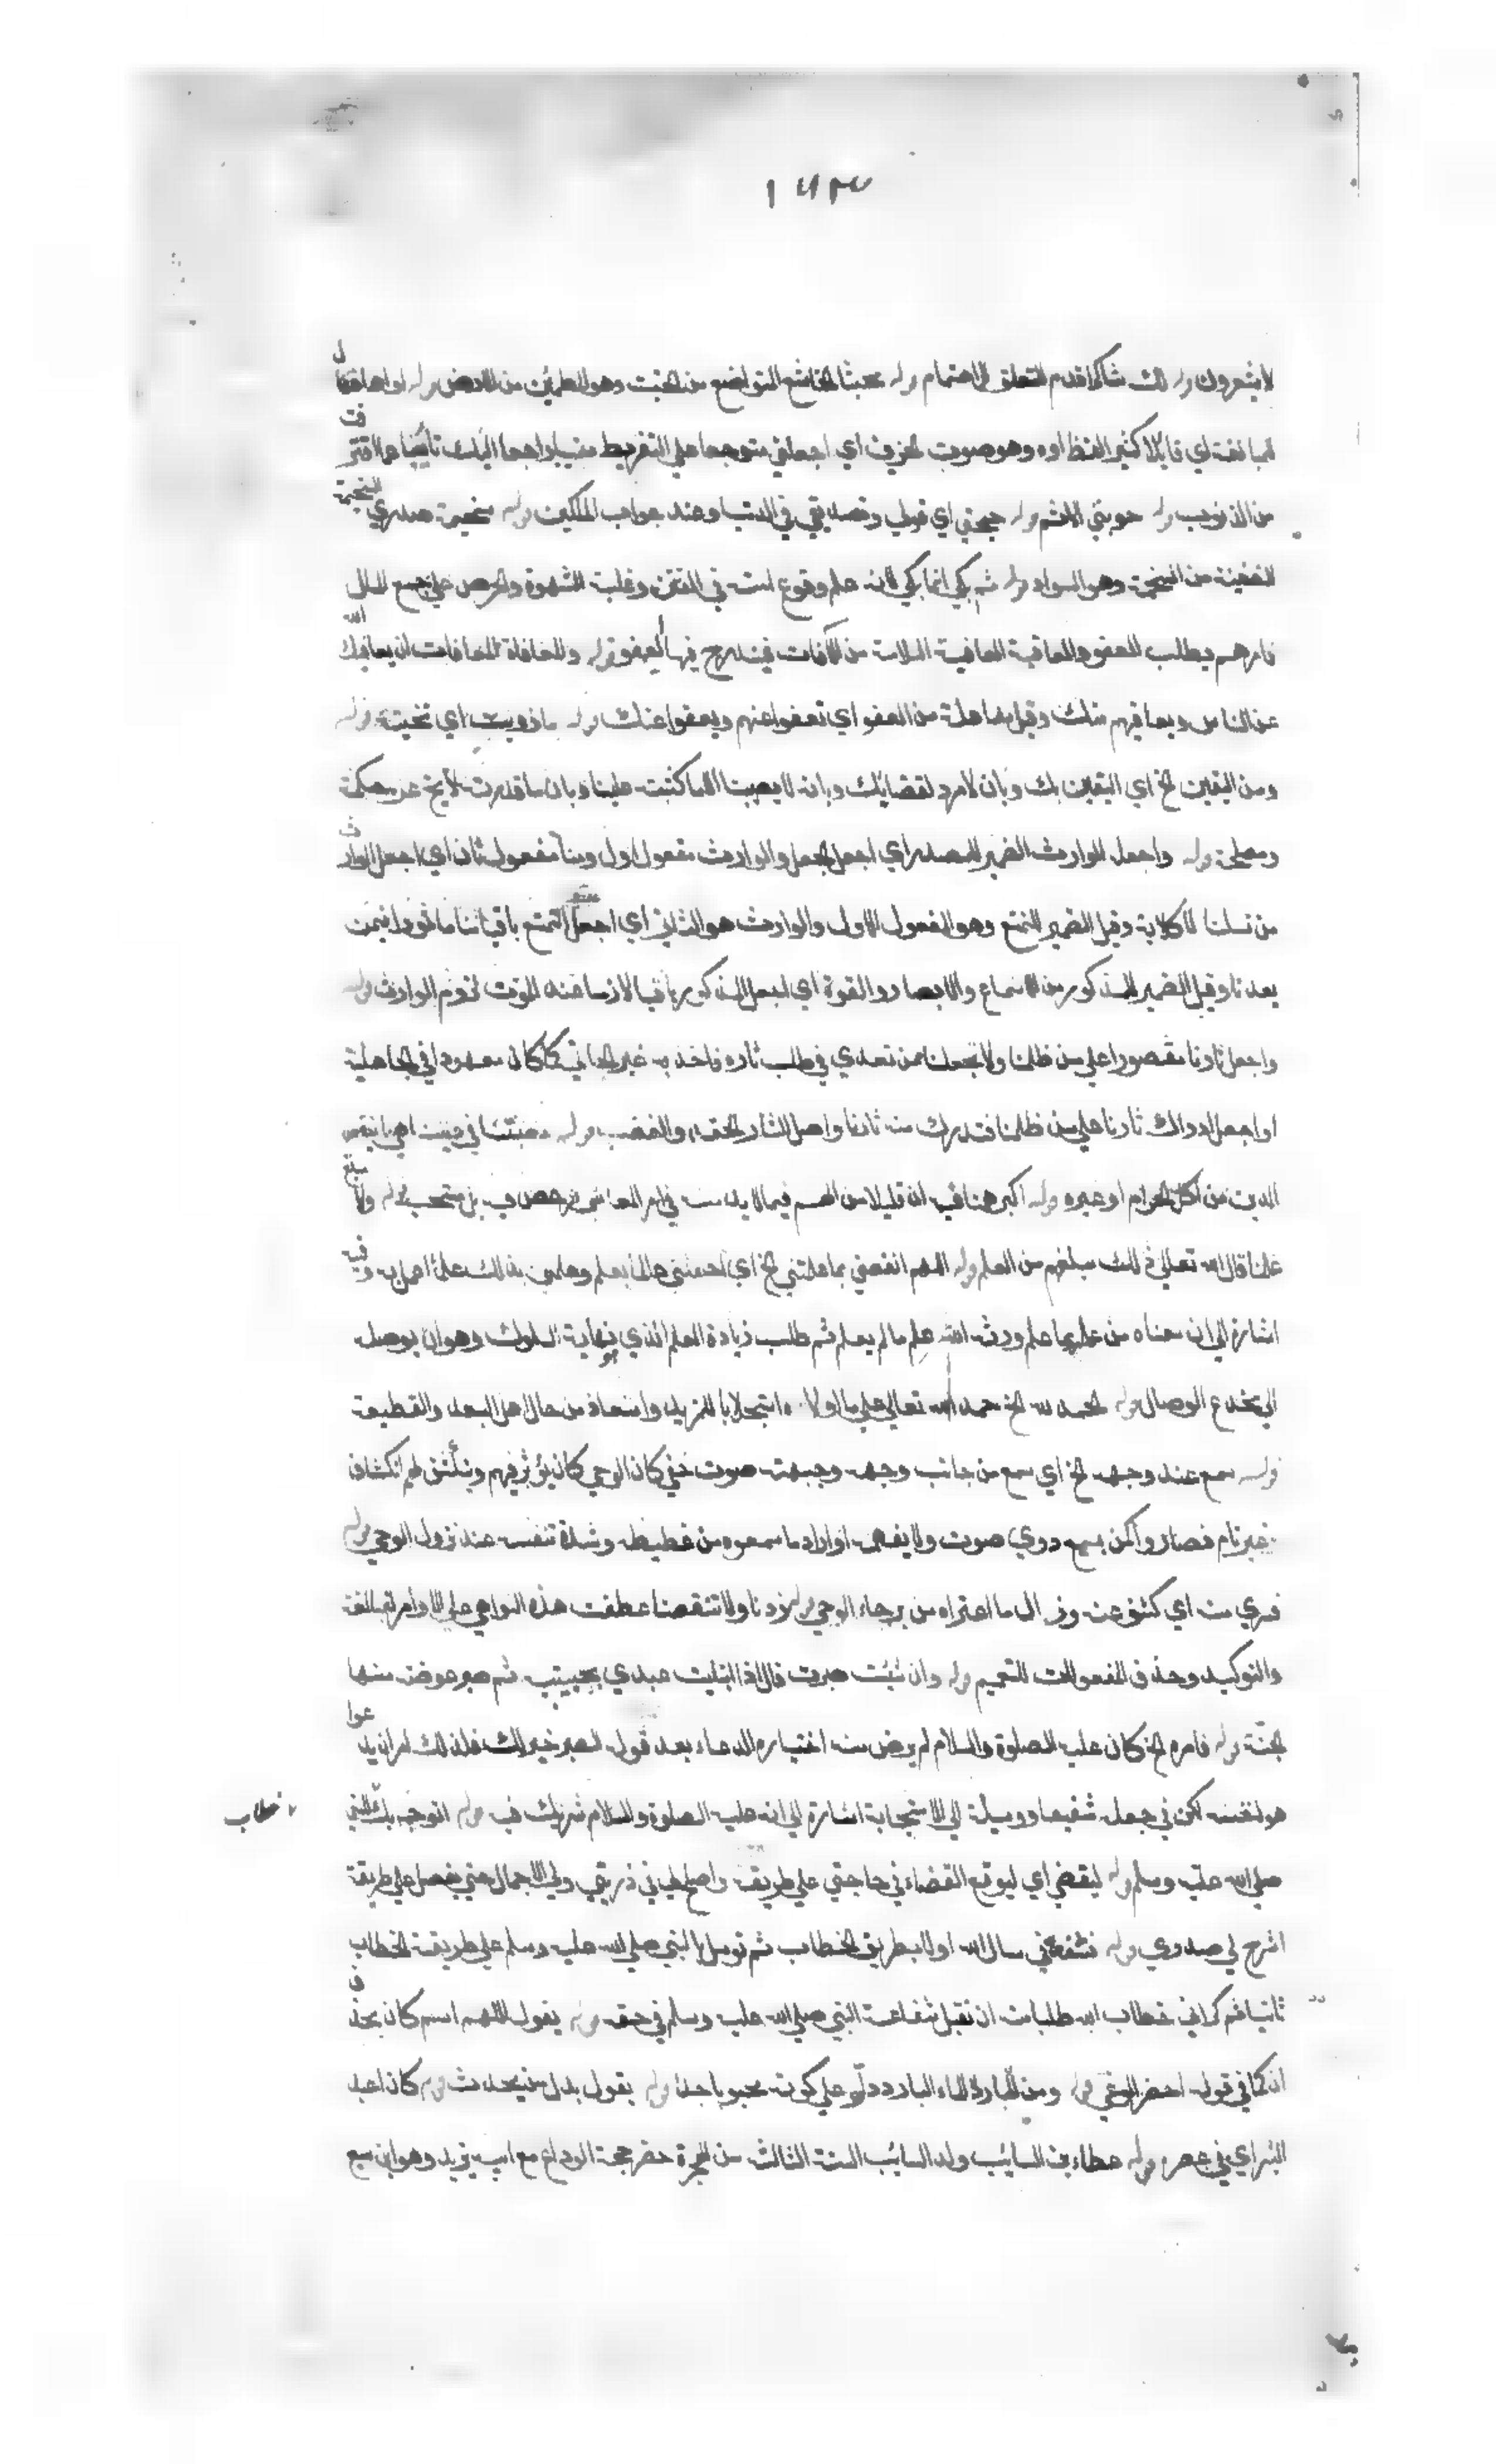 ١٧٣
لا يشعرون قوله لك شاكرا قدم المتعلق للاهتمام قوله مخبتا الخاشع المتواضع من الخبت وهو المطمئن من الارض قوله اواها فعال
للمبالغة اي قايلا كثيرا لفظ اوه وهو صوت الحزين اي اجعلني متوجعا علي التفريط منيبا راجعا اليك تائبا عما اقترفت
من الذنوب قوله حوبتي الاثم قوله حجتي اي قولي وتصديقي في الدنيا وعند جواب الملكين قوله سخيمة صدري السخيمة
الضغينة من السخمة وهو السواد قوله ثم بكي انما بكي لانه علم وقوع امته في الفتن وغلبة الشهوة والحرص علي جمع المال
فامرهم بطلب العفو والعافية العافية السلامة من الآفات فيندرج فيها العفو قوله والمعافاة المعافات ان يعافيك الله
عن الناس ويعافيهم منك وقيل مفاعلة من العفو اي تعفوا عنهم ويعفوا عنك قوله ما زويت اي نحيته قوله
ومن اليقين الخ اي اليقين بك وبان لا مرد لقضائك وبانه لا يصيبنا الا ما كتبت علينا وبان ما قدرت لا يخ عن حكمة
ومصلحة قوله واجعل الوارث الضمير للمصدر اي اجعل الجعل والوارث مفعول اول ومنا مفعول ثان اي اجعل الوارث
من نسلنا لا كلالة وقيل الضمير للتمتع وهو المفعول الاول والوارث هو الثاني اي اجعل التمتع باقيا منا ماثورا فيمن
بعدنا وقيل الضمير للمذكور من الاسماع والابصار والقوة اي اجعل المذكور باقيا لازما عند الموت لزوم الوارث قوله
واجعل ثارنا مقصورا علي من ظلمنا ولا تجعلنا ممن تعدي في طلب ثاره فاخذ به غير الجاني كما كان معهودا في الجاهلية
او اجعل ادراك ثارنا علي من ظلمنا فتدرك منه ثارنا واصل الثار الحقد والغضب قوله مصيبتنا في ديننا اي ما ينقص
الدين من اكل الحرام او غيره قوله اكبر همنا فيه ان قليلا من الهم فيما لا بد منه في امر المعاش مرخص فيه بل مستحب قوله ولا مبلغ
علمنا قال الله تعالي ذلك مبلغهم من العلم قوله اللهم انفعني بما علمتني الخ اي اجعلني عالما بعلم وعلمي بذلك علما اعمل به وفيه
اشارة الي ان معناه من عمل بما علم ورثه الله علم ما لم يعلم ثم طلب زيادة العلم الذي هو نهاية السلوك وهو ان يوصل
الي مخدع الوصال قوله الحمد لله الخ حمد الله تعالي علي ما اولاه استجلابا للمزيد واستعاذ من حال اهل البعد والقطيعة
قوله سمع عند وجهه الخ اي سمع من جانب وجهه وجبهته صوت خفي كان الوحي كان يؤثر فيهم وينكشف لهم انكشافا
غير تام فصاروا كمن يسمع دوي صوت ولا يفهمه او اراد ما سمعوه من غطيطه وشدة تنفسه عند نزول الوحي قوله
فسري عنه اي كشف عنه وزال ما اعتراه من برحاء الوحي قوله زدنا ولا تنقصنا عطفت هذه النواهي علي الاوامر للمبالغة
والتوكيد وحذف المفعولات للتعميم قوله وان شئت صبرت قال اذا ابتليت عبدي بحبيبتيه ثم صبر عوضته منهما
الجنة قوله فامره الخ كان عليه الصلوة والسلام لم يرض منه اختياره الدعاء بعد قوله الصبر خير لك فلذلك امر ان يدعوا
هو لنفسه لكن في جعله شفيعا ووسيلة الي الاستجابة اشارة الي انه عليه الصلوة والسلام شريك فيه قوله اتوجه بك للنبي
خطاب
صلي الله عليه وسلم قوله ليقضي اي ليوقع القضاء في حاجتي علي طريقة واصلح لي في ذريتي ولي الاجمال حتي يفصل علي طريقة
اشرح لي صدري قوله فشفعه في سال الله اولا بطريق الخطاب ثم توسل بالنبي صلي الله عليه وسلم علي طريقة الخطاب
ثانيا ثم كر الي خطاب الله طلبا منه ان تقبل شفاعة النبي صلي الله عليه وسلم في حقه قوله يقول اللهم اسم كان بحذف
ان كما في قوله احضر الوغي قوله ومن الماء البارد الماء البارد دل علي كونه محبوبا جدا قوله يقول بدل من يحدث قوله كان اعبد
البشر اي في عصره قوله عطاء بن السائب ولد السائب السنة الثالثة من الهجرة حضر حجة الوداع مع ابيه يزيد وهو ابن سبع